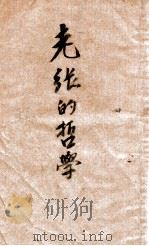 老张的哲學
mtoou.info